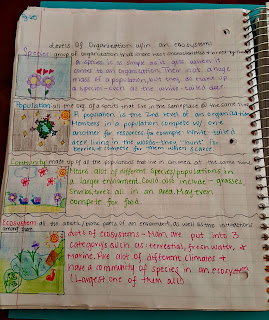 Levels of Organization w/in an ecosystem
Species: group of organisms that share
A species is as simple as it gets when it
comes to an organization. Their not a huge
mass of a population, but they do make up
a species-such as the white-tailed deer
Population: all the org. of a species that live in the same place @ the same time
A population is the 2nd level of an organization
Members in a population compete w/ one
another for resources for example: White-tailed
deer living in the woods-they "hunt" for
berries & compete for them when scarce
Community: made up of all the populations that live in an area at the same time
Many alot of different species/populations in
a larger enviorment could also include - grasses
shrubs, trees all in an area. May even
compete for food.
Ecosystem: all the abiotic/biotic parts of an enviorment, as well as the interactions
among them
Lots of ecosystems - Main are put into 3
categorys such as: terrestrial, fresh water, &
Marine. Are alot of different climates +
have a community of species in an ecosystem
(Largest one of them all)